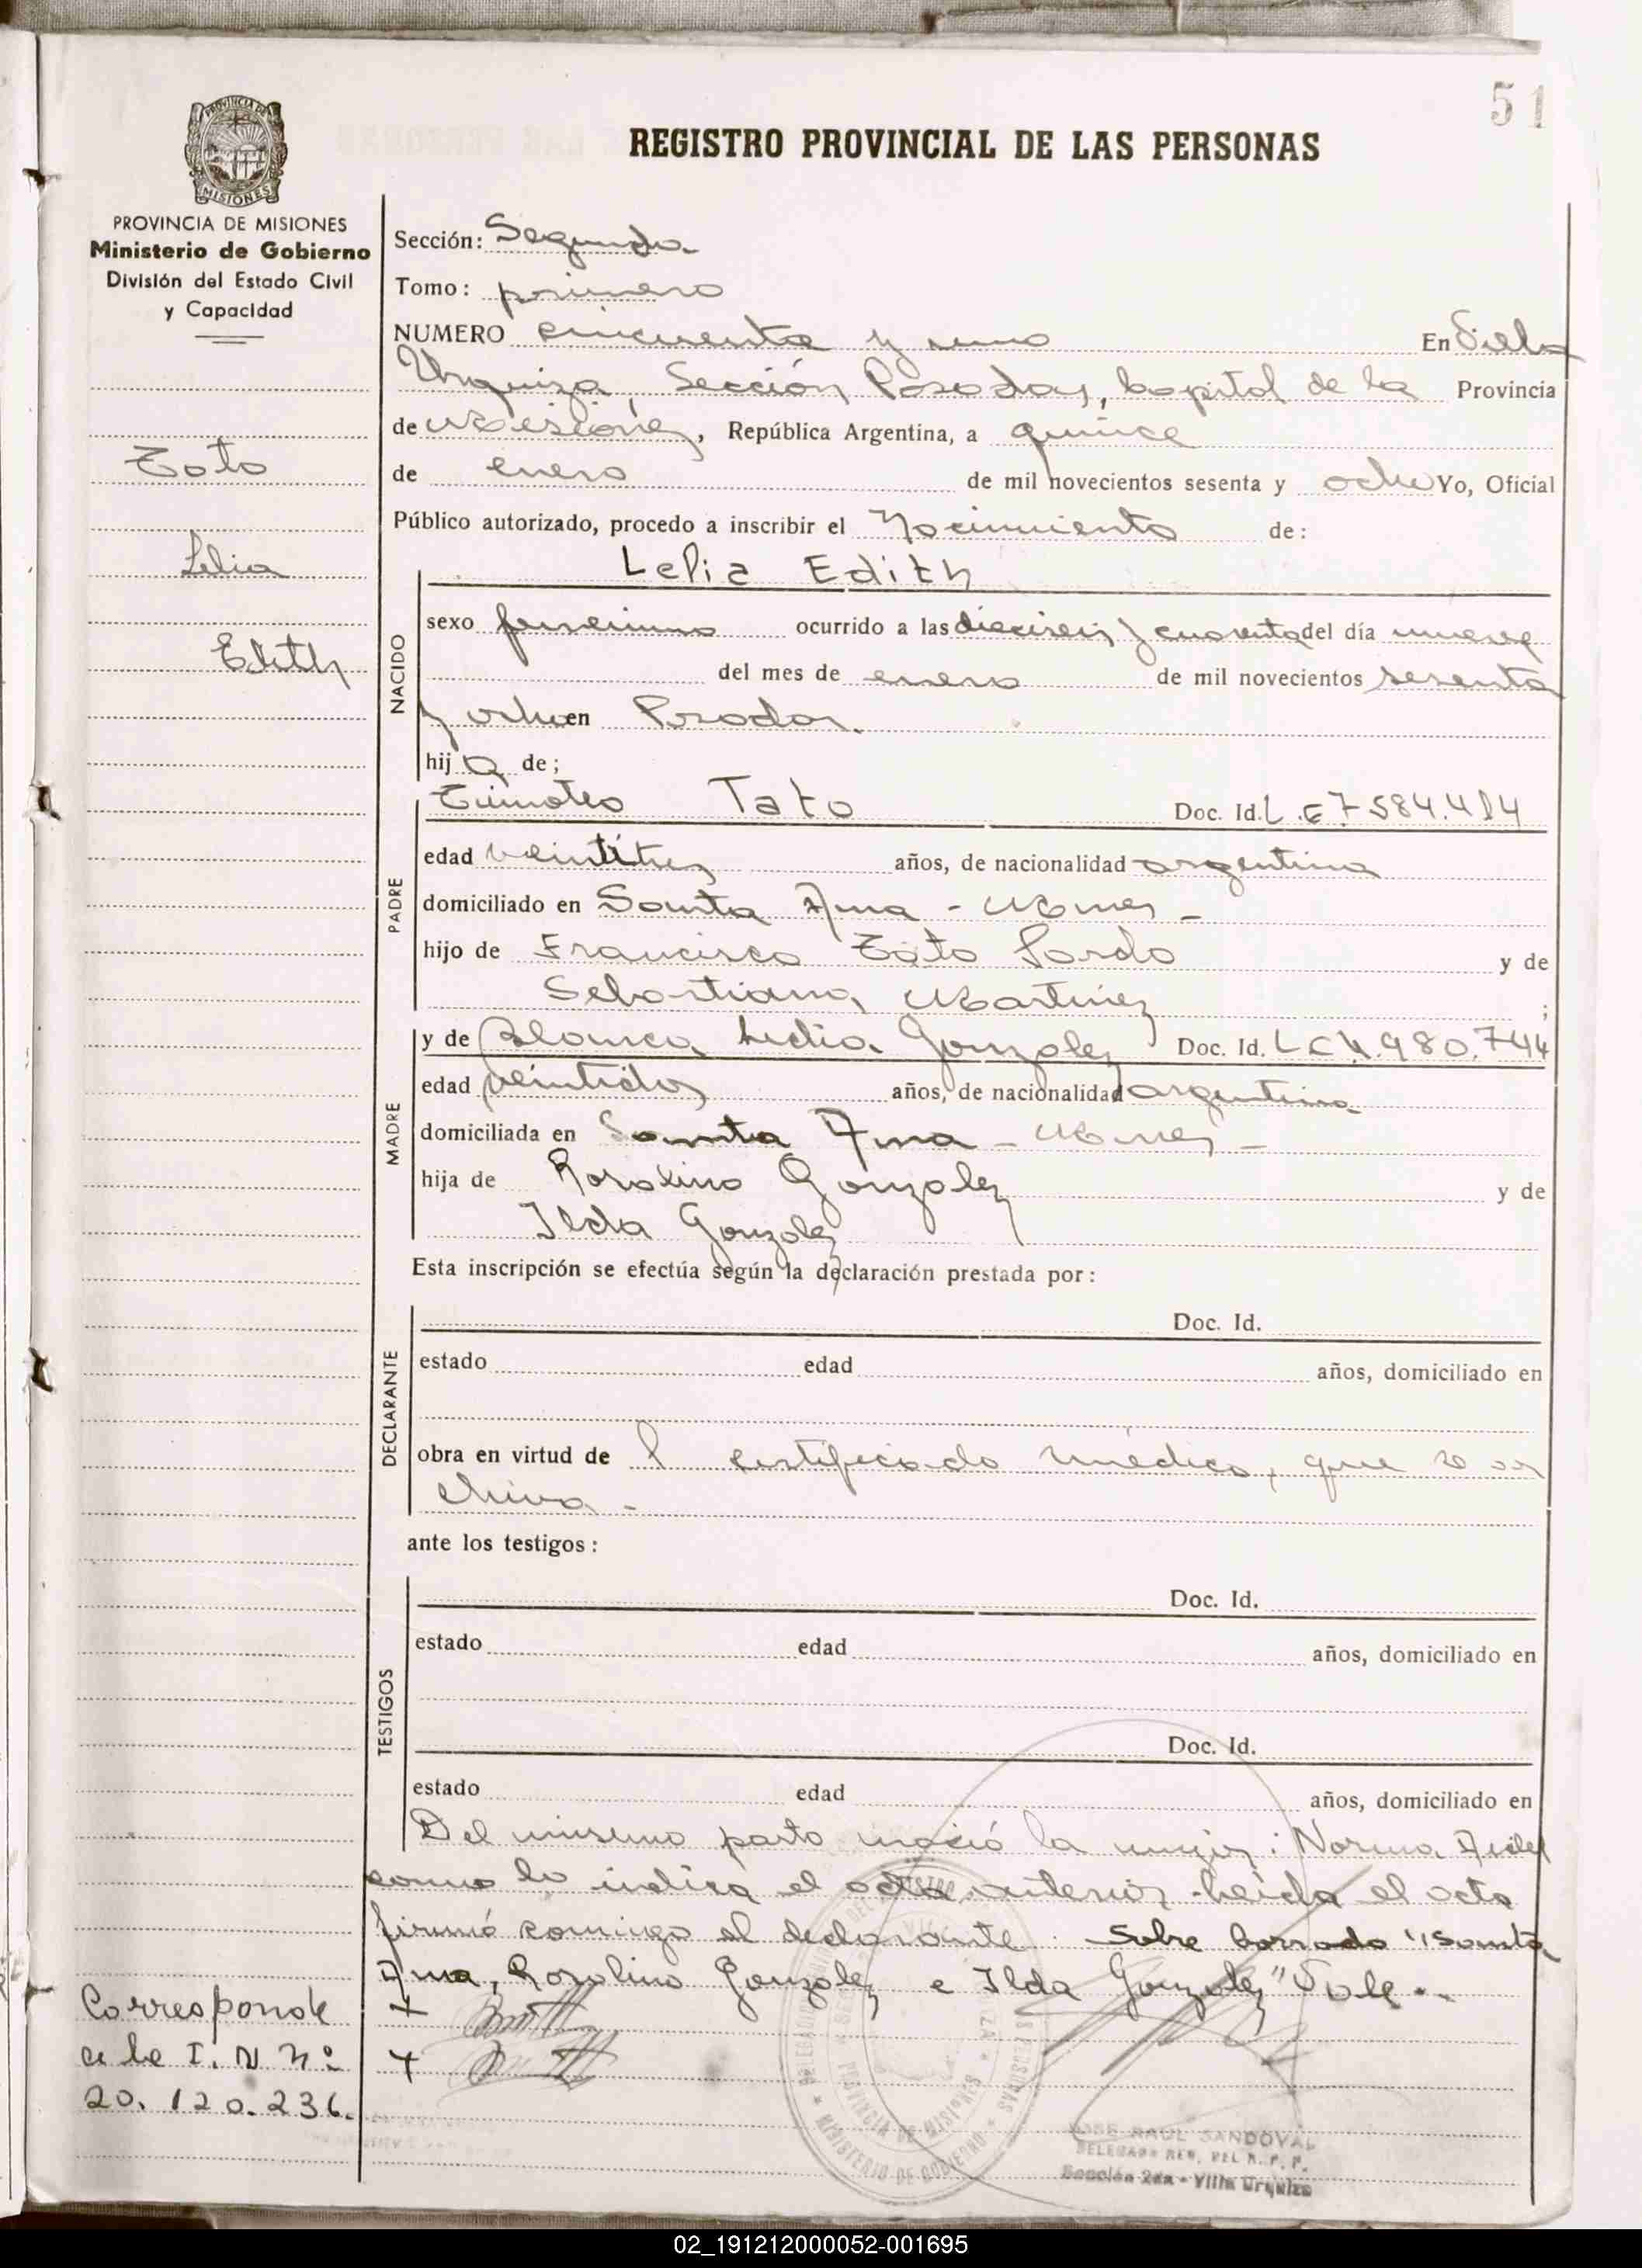 51
PROVINCIA DE
MISIONES
REGISTRO PROVINCIAL DE LAS PERSONAS
PROVINCIA DE MISIONES
Ministerio de Gobierno
División del Estado Civil
y Capacidad
Tato
Lelia
Edith
Sección: Segunda
Tomo: primero
NUMERO cincuenta y uno En Villa
Urquiza, Sección Posadas, Capital de la Provincia
de Misiones, República Argentina, a quince
de enero de mil novecientos sesenta y ocho Yo, Oficial
Público autorizado, procedo a inscribir el Nacimiento de:
Lelia Edith
NACIDO
sexo femenino ocurrido a las dieciseis y cuarenta del día nueve
del mes de enero de mil novecientos sesenta
y ocho en Posadas.
hij a de;
PADRE
Timoteo Tato Doc. Id. L.E 7584.414
edad veintitres años, de nacionalidad argentina
domiciliado en Santa Ana - Mnes -
hijo de Francisco Tato Pardo y de
Sebastiana Martinez ;
MADRE
y de Blanca Lidia Gonzalez Doc. Id. LC 4.980.744
edad veintidos años, de nacionalidad argentina
domiciliada en Santa Ana - Mnes -
hija de Rosalino Gonzalez y de
Ilda Gonzalez
Esta inscripción se efectúa según la declaración prestada por:
DECLARANTE
Doc. Id.
estado edad años, domiciliado en
obra en virtud de l certificado médico, que se ar
chiva -
ante los testigos:
TESTIGOS
Doc. Id.
estado edad años, domiciliado en
Doc. Id.
estado edad años, domiciliado en
Del mismo parto nació la mujer: Norma
como lo indica el acta anterior. Leída el acta
firmó conmigo el declarante. Sobre borrado "Santa
Ana, Rosalino Gonzalez e Ilda Gonzalez" Vale.-
Corresponde
a la I. N Nº
20.120.236.
PROVINCIA DE MISIONES
MINISTERIO DE GOBIERNO
JOSE RAUL SANDOVAL
DELEGADO REG. DEL R. P. P.
Sección 2da - Villa Urquiza
02_191212000052-001695